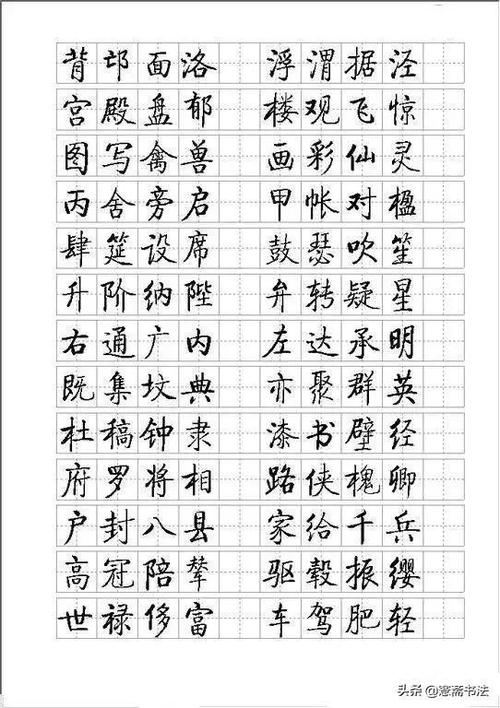 背邙面洛 浮渭据泾
宫殿盘郁 楼观飞惊
图写禽兽 画彩仙灵
丙舍旁启 甲帐对楹
肆筵设席 鼓瑟吹笙
升阶纳陛 弁转疑星
右通广内 左达承明
既集坟典 亦聚群英
杜稿钟隶 漆书壁经
府罗将相 路侠槐卿
户封八县 家给千兵
高冠陪辇 驱毂振缨
世禄侈富 车驾肥轻
头条 @斋书法